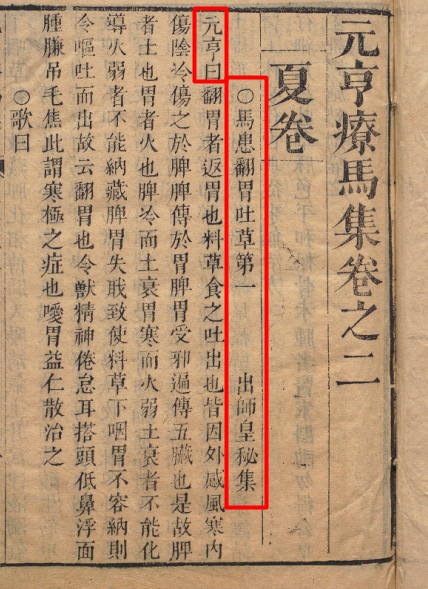 元亨療馬集卷之二
夏卷
○馬患翻胃吐草第一 出師皇秘集
元亨曰翻胃者返胃也料草食之吐出也皆因外感風寒內
傷陰冷傷之於脾脾傳於胃脾胃受邪遍傳五臟也是故脾
者土也胃者火也脾冷而土衰胃寒而火弱土衰者不能化
導火弱者不能納藏脾胃失戢致使料草下咽胃不容納則
令嘔吐而出故云翻胃也令獸精神倦怠耳搭頭低鼻浮面
腫臁吊毛焦此謂寒極之症也噯胃益仁散治之
○歌曰